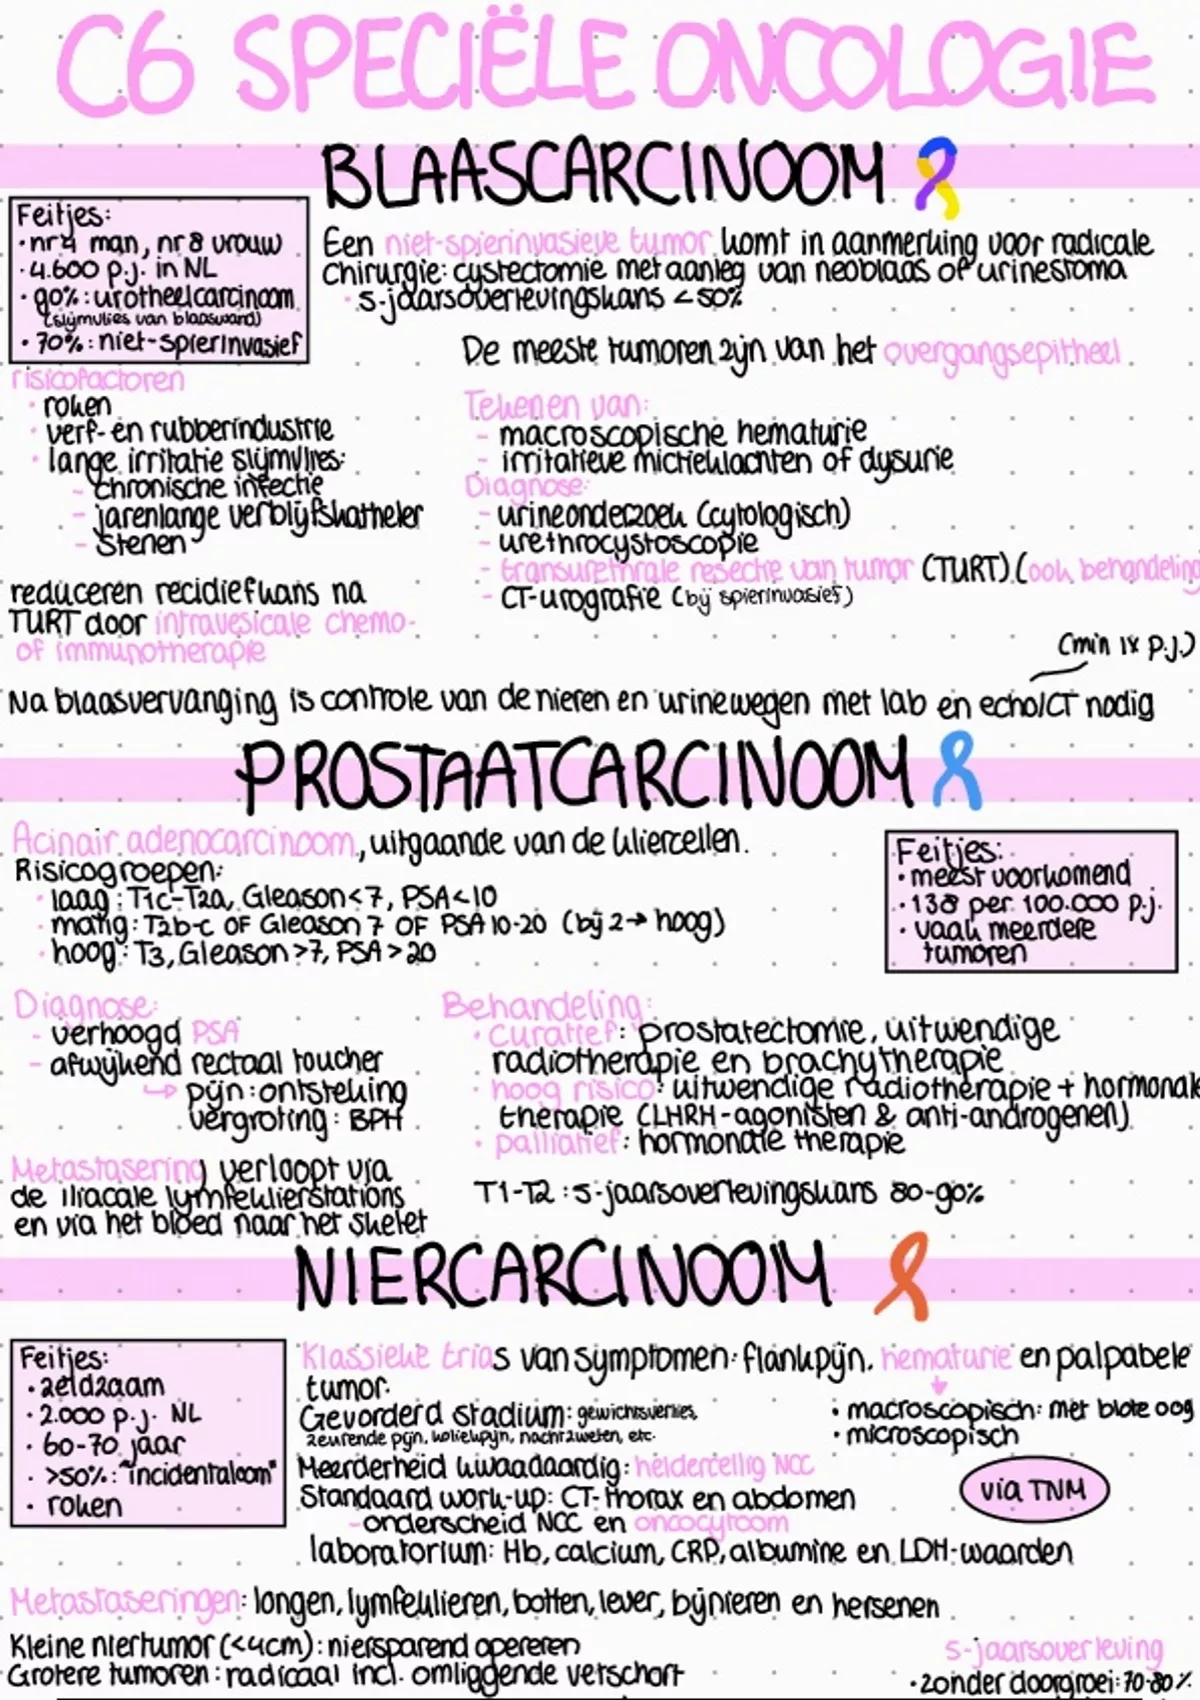 C6 SPECIËLE ONCOLOGIE
BLAASCARCINOOM
Feitjes:
· nr 4 man, nr 8 vrouw
· 4.600 p.j. in NL
· 90%: urotheelcarcinoom
(slijmvlies van blaaswand)
· 70%: niet-spierinvasief
Een niet-spierinvasieve tumor komt in aanmerking voor radicale
chirurgie: cystectomie met aanleg van neoblaas of urinestoma
· 5-jaarsoverlevingskans < 50%
De meeste tumoren zijn van het overgangsepitheel
risicofactoren
· roken
· verf- en rubberindustrie
· lange irritatie slijmvlies:
- chronische infectie
- jarenlange verblijfskatheter
- stenen
reduceren recidiefkans na
TURT door intravesicale chemo-
of immunotherapie
Tekenen van:
- macroscopische hematurie
- irritatieve mictieklachten of dysurie
Diagnose:
- urineonderzoek (cytologisch)
- urethrocystoscopie
- transurethrale resectie van tumor (TURT) (ook behandeling
- CT-urografie (bij spierinvasief)
(min 1x p.j.)
Na blaasvervanging is controle van de nieren en urinewegen met lab en echo/CT nodig
PROSTAATCARCINOOM
Acinair adenocarcinoom, uitgaande van de kliercellen.
Risicogroepen:
· laag: T1c-T2a, Gleason<7, PSA<10
· matig: T2b-c OF Gleason 7 OF PSA 10-20 (bij 2→ hoog)
· hoog: T3, Gleason >7, PSA > 20
Feitjes:
· meest voorkomend
· 138 per 100.000 p.j.
· vaak meerdere
tumoren
Diagnose:
- verhoogd PSA
- afwijkend rectaal toucher
↳ pijn: ontsteking
vergroting: BPH
Metastasering verloopt via
de iliacale lymfeklierstations
en via het bloed naar het skelet
Behandeling:
· Curatief: prostatectomie, uitwendige
radiotherapie en brachytherapie
· hoog risico: uitwendige radiotherapie + hormonale
therapie (LHRH-agonisten & anti-androgenen)
· palliatief: hormonale therapie
T1-T2: 5-jaarsoverlevingskans 80-90%
NIERCARCINOOM
Feitjes:
· zeldzaam
· 2.000 p.j. NL
· 60-70 jaar
· >50%: "incidentaloom"
· roken
Klassieke trias van symptomen: flankpijn, hematurie en palpabele
tumor.
↓
· macroscopisch: met blote oog
· microscopisch
Gevorderd stadium: gewichtsverlies,
zeurende pijn, koliekpijn, nachtzweten, etc.
Meerderheid kwaadaardig: heldercellig NCC
Standaard work-up: CT-thorax en abdomen
- onderscheid NCC en oncocytoom
laboratorium: Hb, calcium, CRP, albumine en LDH-waarden
via TNM
Metastaseringen: longen, lymfeklieren, botten, lever, bijnieren en hersenen
Kleine niertumor (<4cm): niersparend opereren
Grotere tumoren: radicaal incl. omliggende vetschort
5-jaarsoverleving
· zonder doorgroei: 70-80%